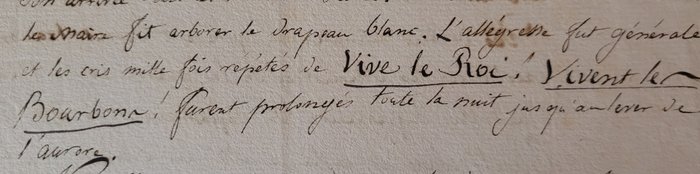 le maire fit arborer le drapeau blanc. L'allégresse fut générale
et les cris mille fois répétés de Vive le Roi! Vivent les
Bourbons! furent prolongés toute la nuit jusqu'au lever de
l'aurore.